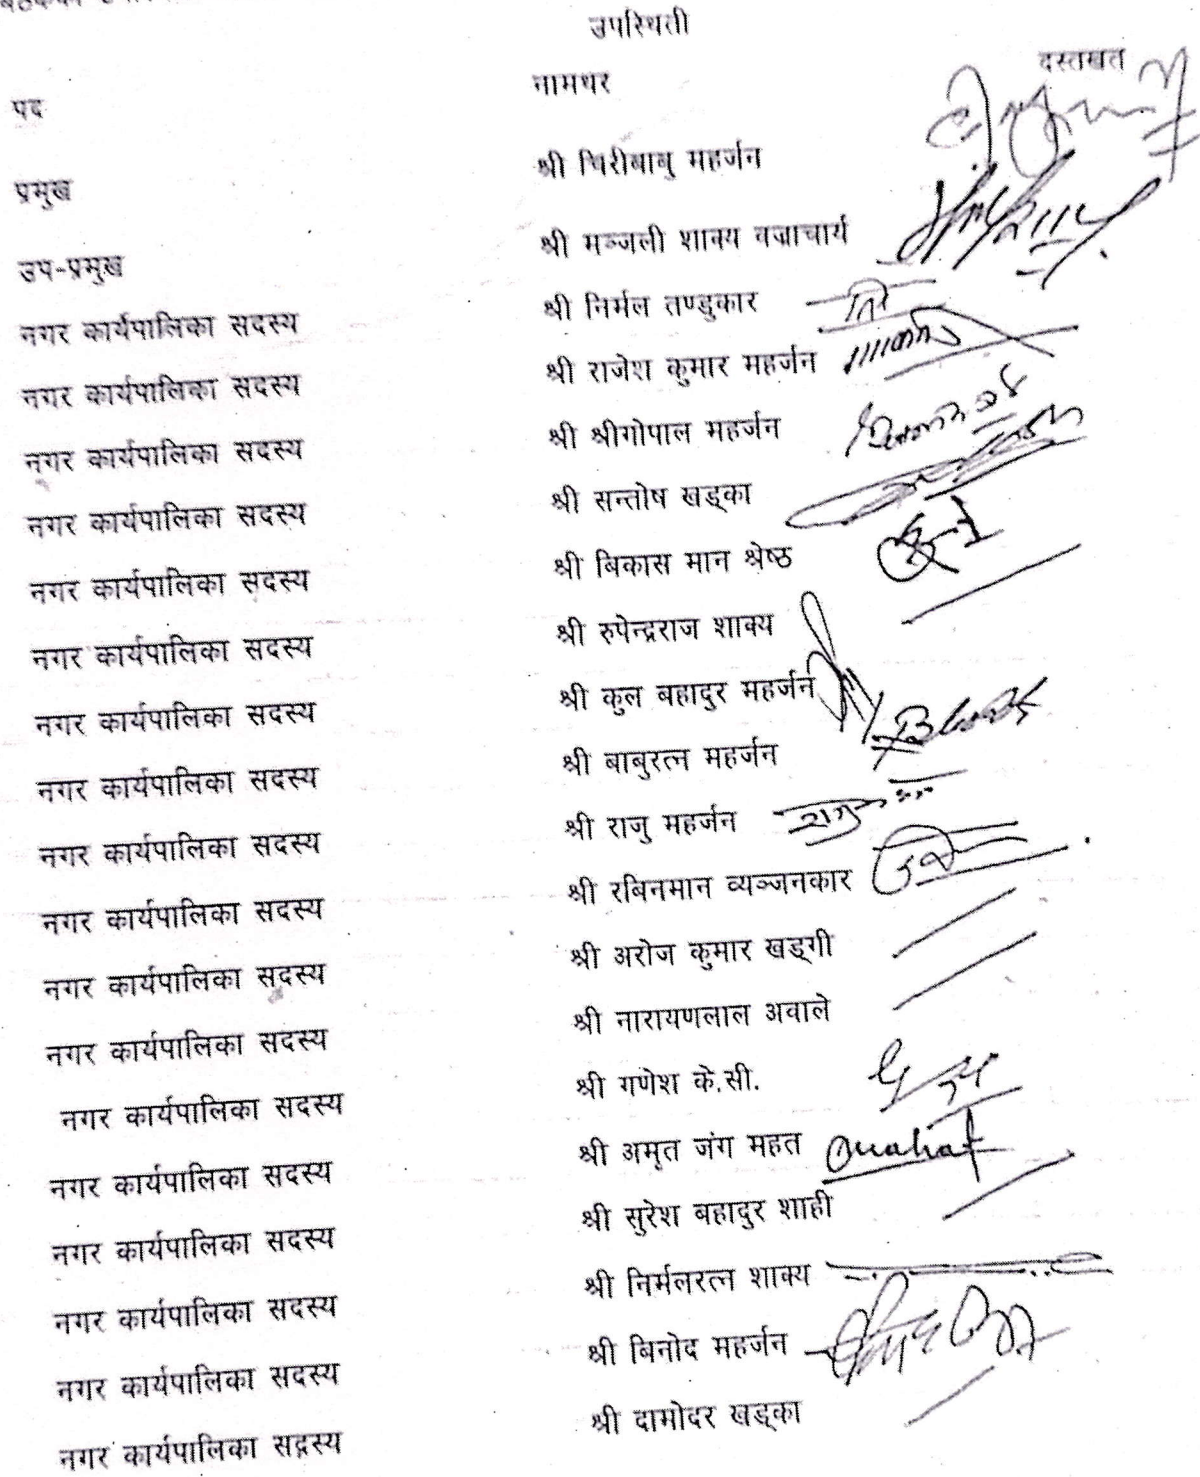 उपस्थिती
पद नामथर दस्तखत
प्रमुख श्री चिरीबाबु महर्जन
उप-प्रमुख श्री मञ्जली शाक्य वज्राचार्य
नगर कार्यपालिका सदस्य श्री निर्मल तण्डुकार
नगर कार्यपालिका सदस्य श्री राजेश कुमार महर्जन
नगर कार्यपालिका सदस्य श्री श्रीगोपाल महर्जन
नगर कार्यपालिका सदस्य श्री सन्तोष खड्का
नगर कार्यपालिका सदस्य श्री बिकास मान श्रेष्ठ
नगर कार्यपालिका सदस्य श्री रुपेन्द्रराज शाक्य
नगर कार्यपालिका सदस्य श्री कुल बहादुर महर्जन
नगर कार्यपालिका सदस्य श्री बाबुरत्न महर्जन
नगर कार्यपालिका सदस्य श्री राजु महर्जन
नगर कार्यपालिका सदस्य श्री रबिनमान व्यञ्जनकार
नगर कार्यपालिका सदस्य श्री अरोज कुमार खड्गी
नगर कार्यपालिका सदस्य श्री नारायणलाल अवाले
नगर कार्यपालिका सदस्य श्री गणेश के.सी.
नगर कार्यपालिका सदस्य श्री अमृत जंग महत
नगर कार्यपालिका सदस्य श्री सुरेश बहादुर शाही
नगर कार्यपालिका सदस्य श्री निर्मलरत्न शाक्य
नगर कार्यपालिका सदस्य श्री बिनोद महर्जन
नगर कार्यपालिका सदस्य श्री दामोदर खड्का